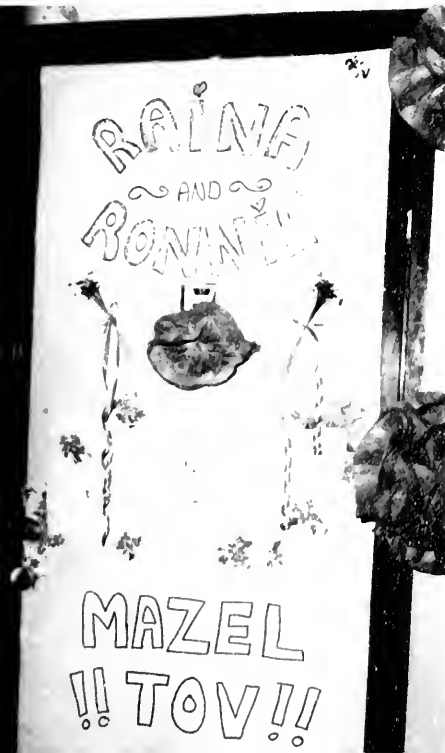 RAINA
AND
RONNIE
MAZEL
!! TOV !!